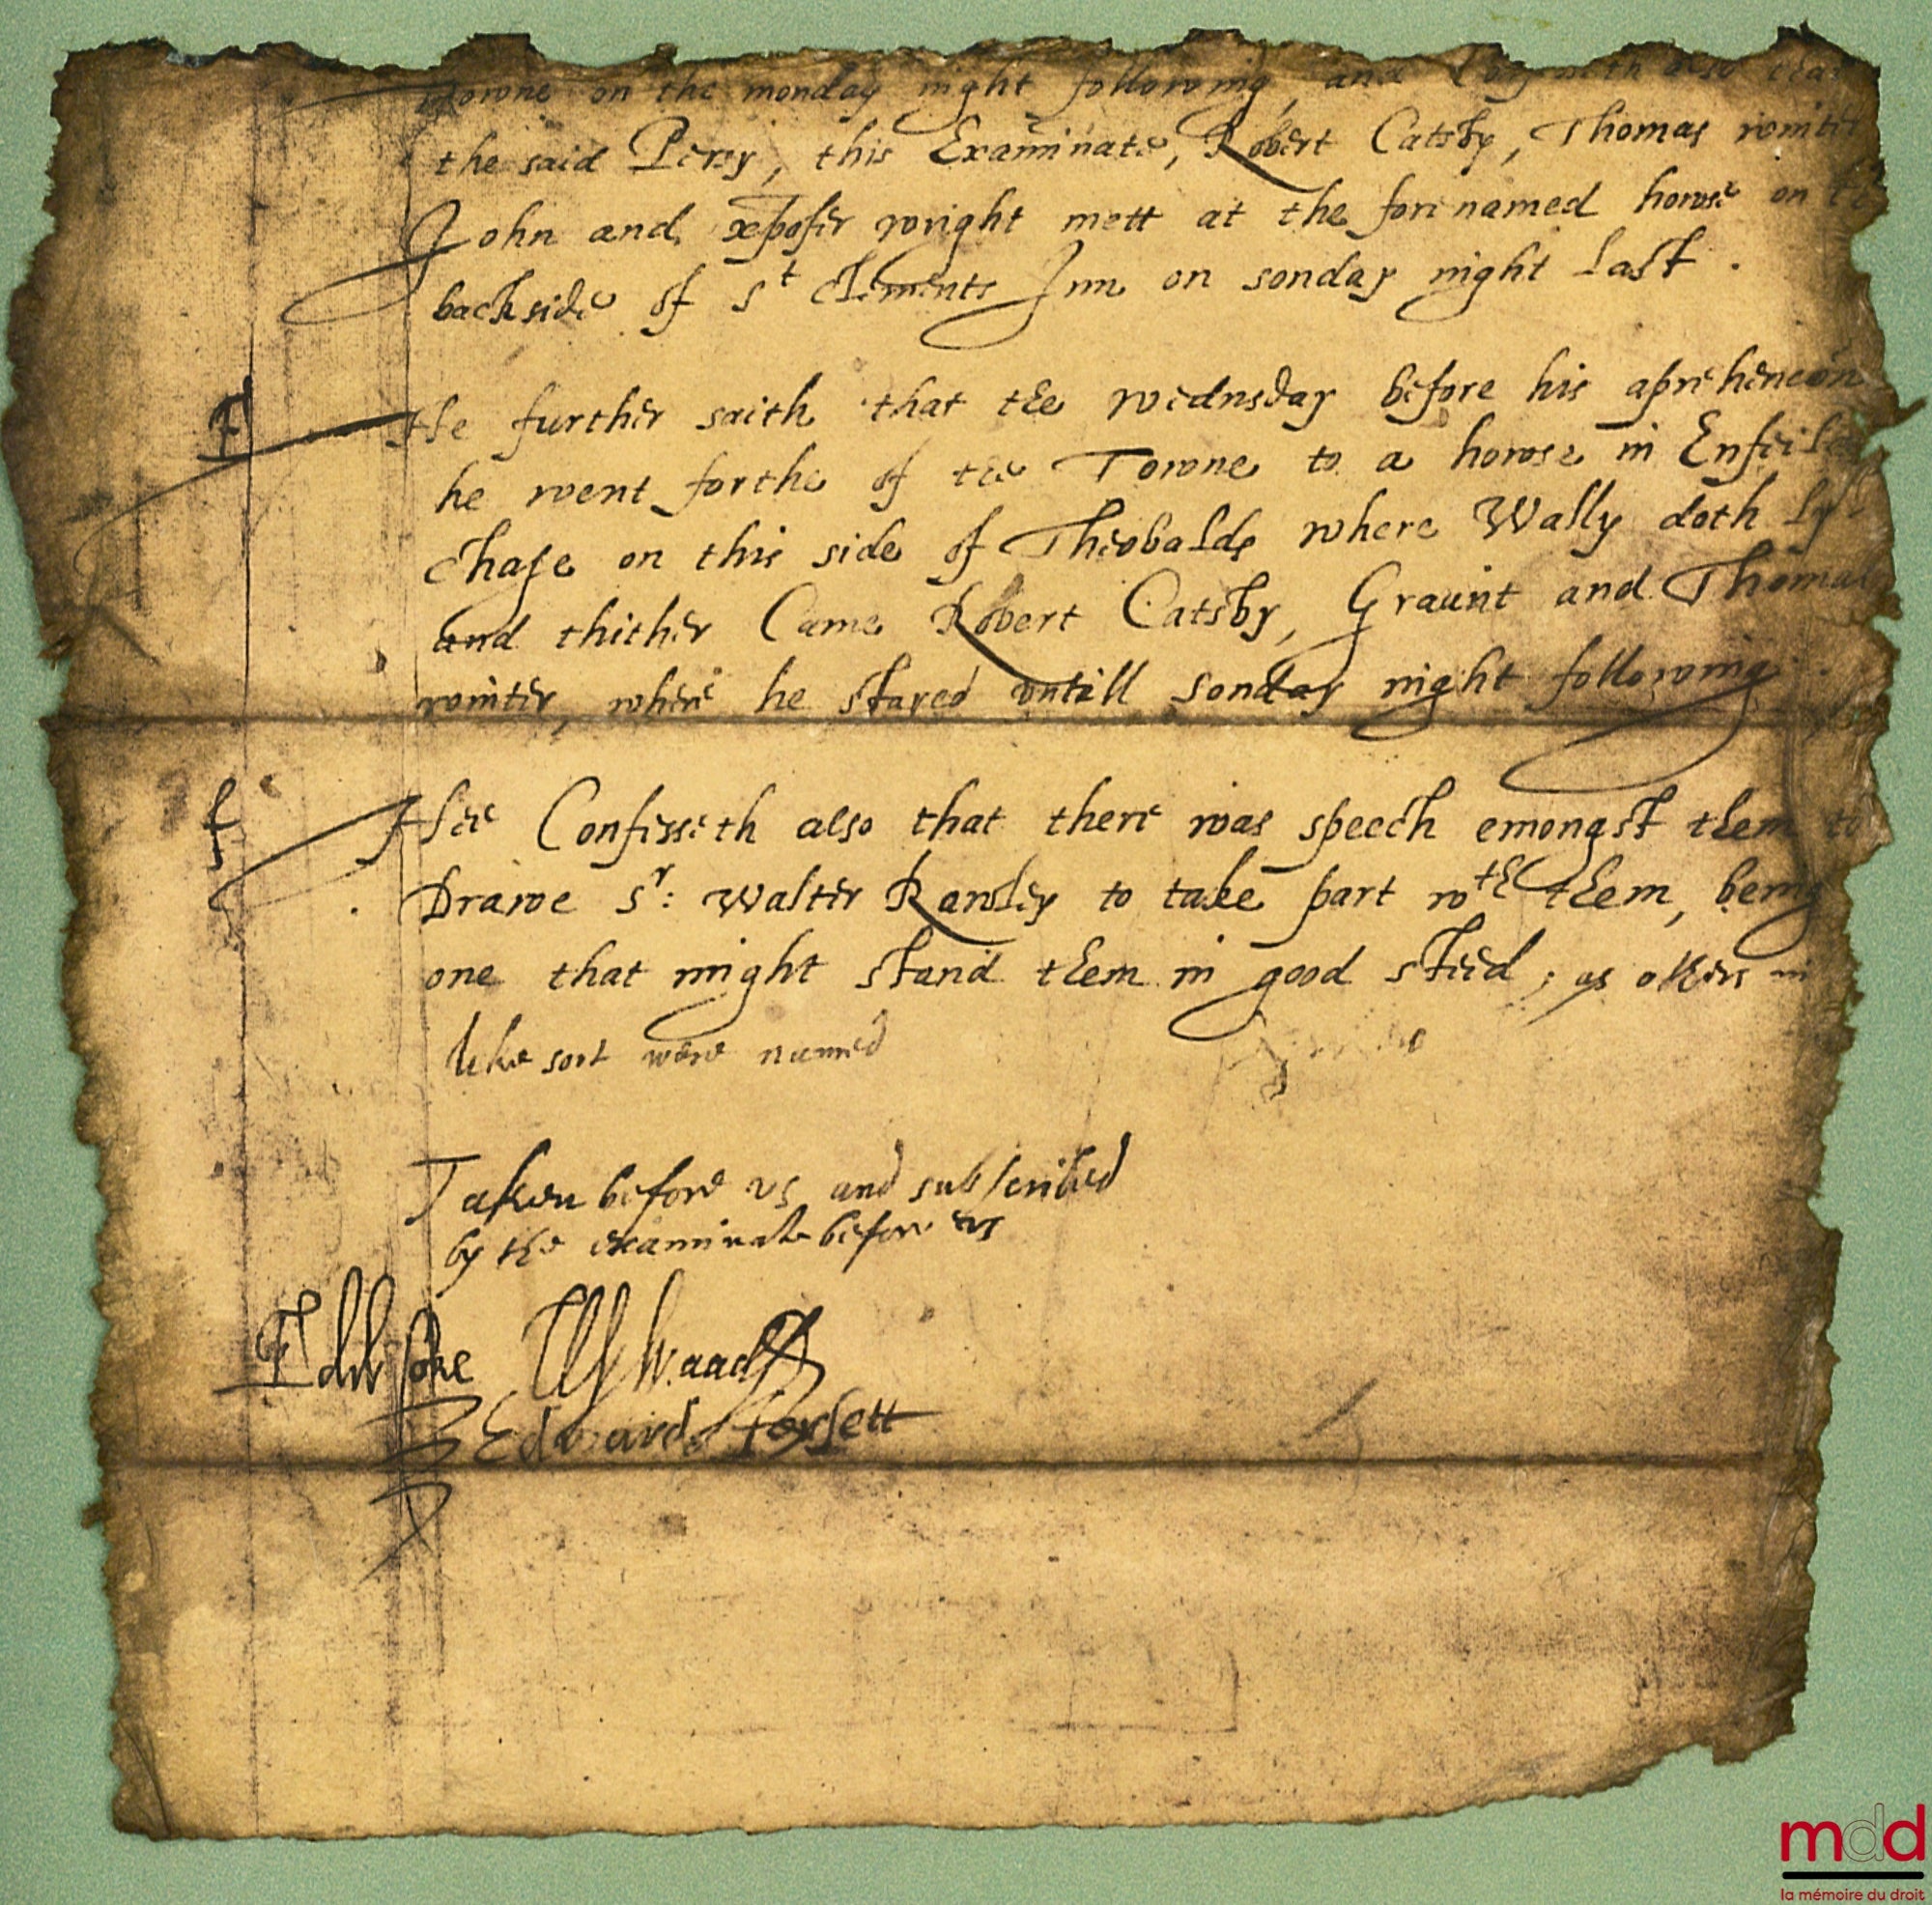 Towne on the monday night following, and Confesseth also that
the said Percy, this Examinate, Robert Catsby, Thomas winter
John and xpofer wright mett at the forenamed howse on the
backside of St Clements Inn on sonday night last.
F He further saith that the wednsday before his aprehencon
he went forthe of the Towne to a howse in Enfeild
Chase on this side of Thebalds where Wally doth
and thither Came Robert Catsby, Graunt and Thomas
winter, where he stayed untill sonday night following.
f Hee Confesseth also that there was speech emongst them to
Drawe Sr: Walter Rawley to take part wth them, being
one that might stand them in good steed; as others in
like sort were named
Taken before vs and subscribed
by the examinate before vs
Edw Coke W Waad
Edward Forsett
mdd
la mémoire du droit